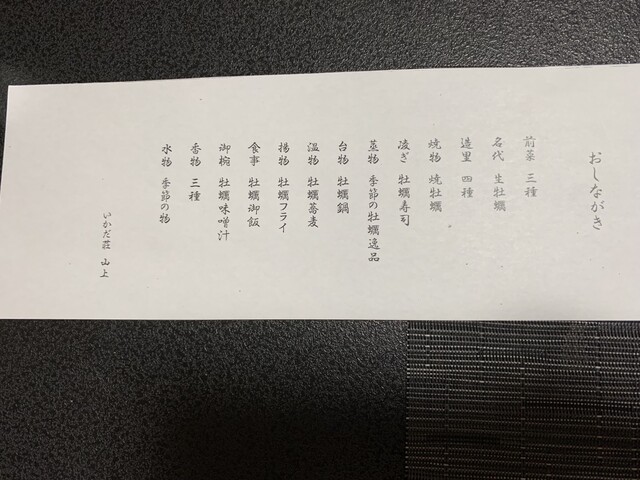 おしながき
前菜 三種
名代 生牡蠣
造里 四種
焼物 焼牡蠣
凌ぎ 牡蠣寿司
蒸物 季節の牡蠣逸品
台物 牡蠣鍋
温物 牡蠣蕎麦
揚物 牡蠣フライ
食事 牡蠣御飯
御椀 牡蠣味噌汁
香物 三種
水物 季節の物
いかだ荘 山上